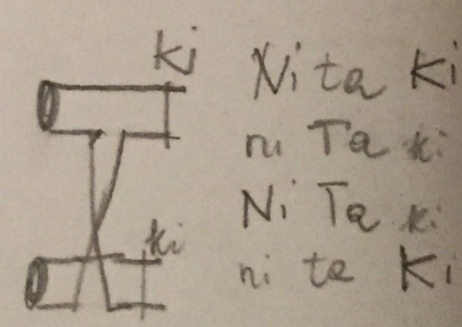 Ki
Ni ta Ki
ni Ta ki
Ni Ta ki
ki
ni ta Ki